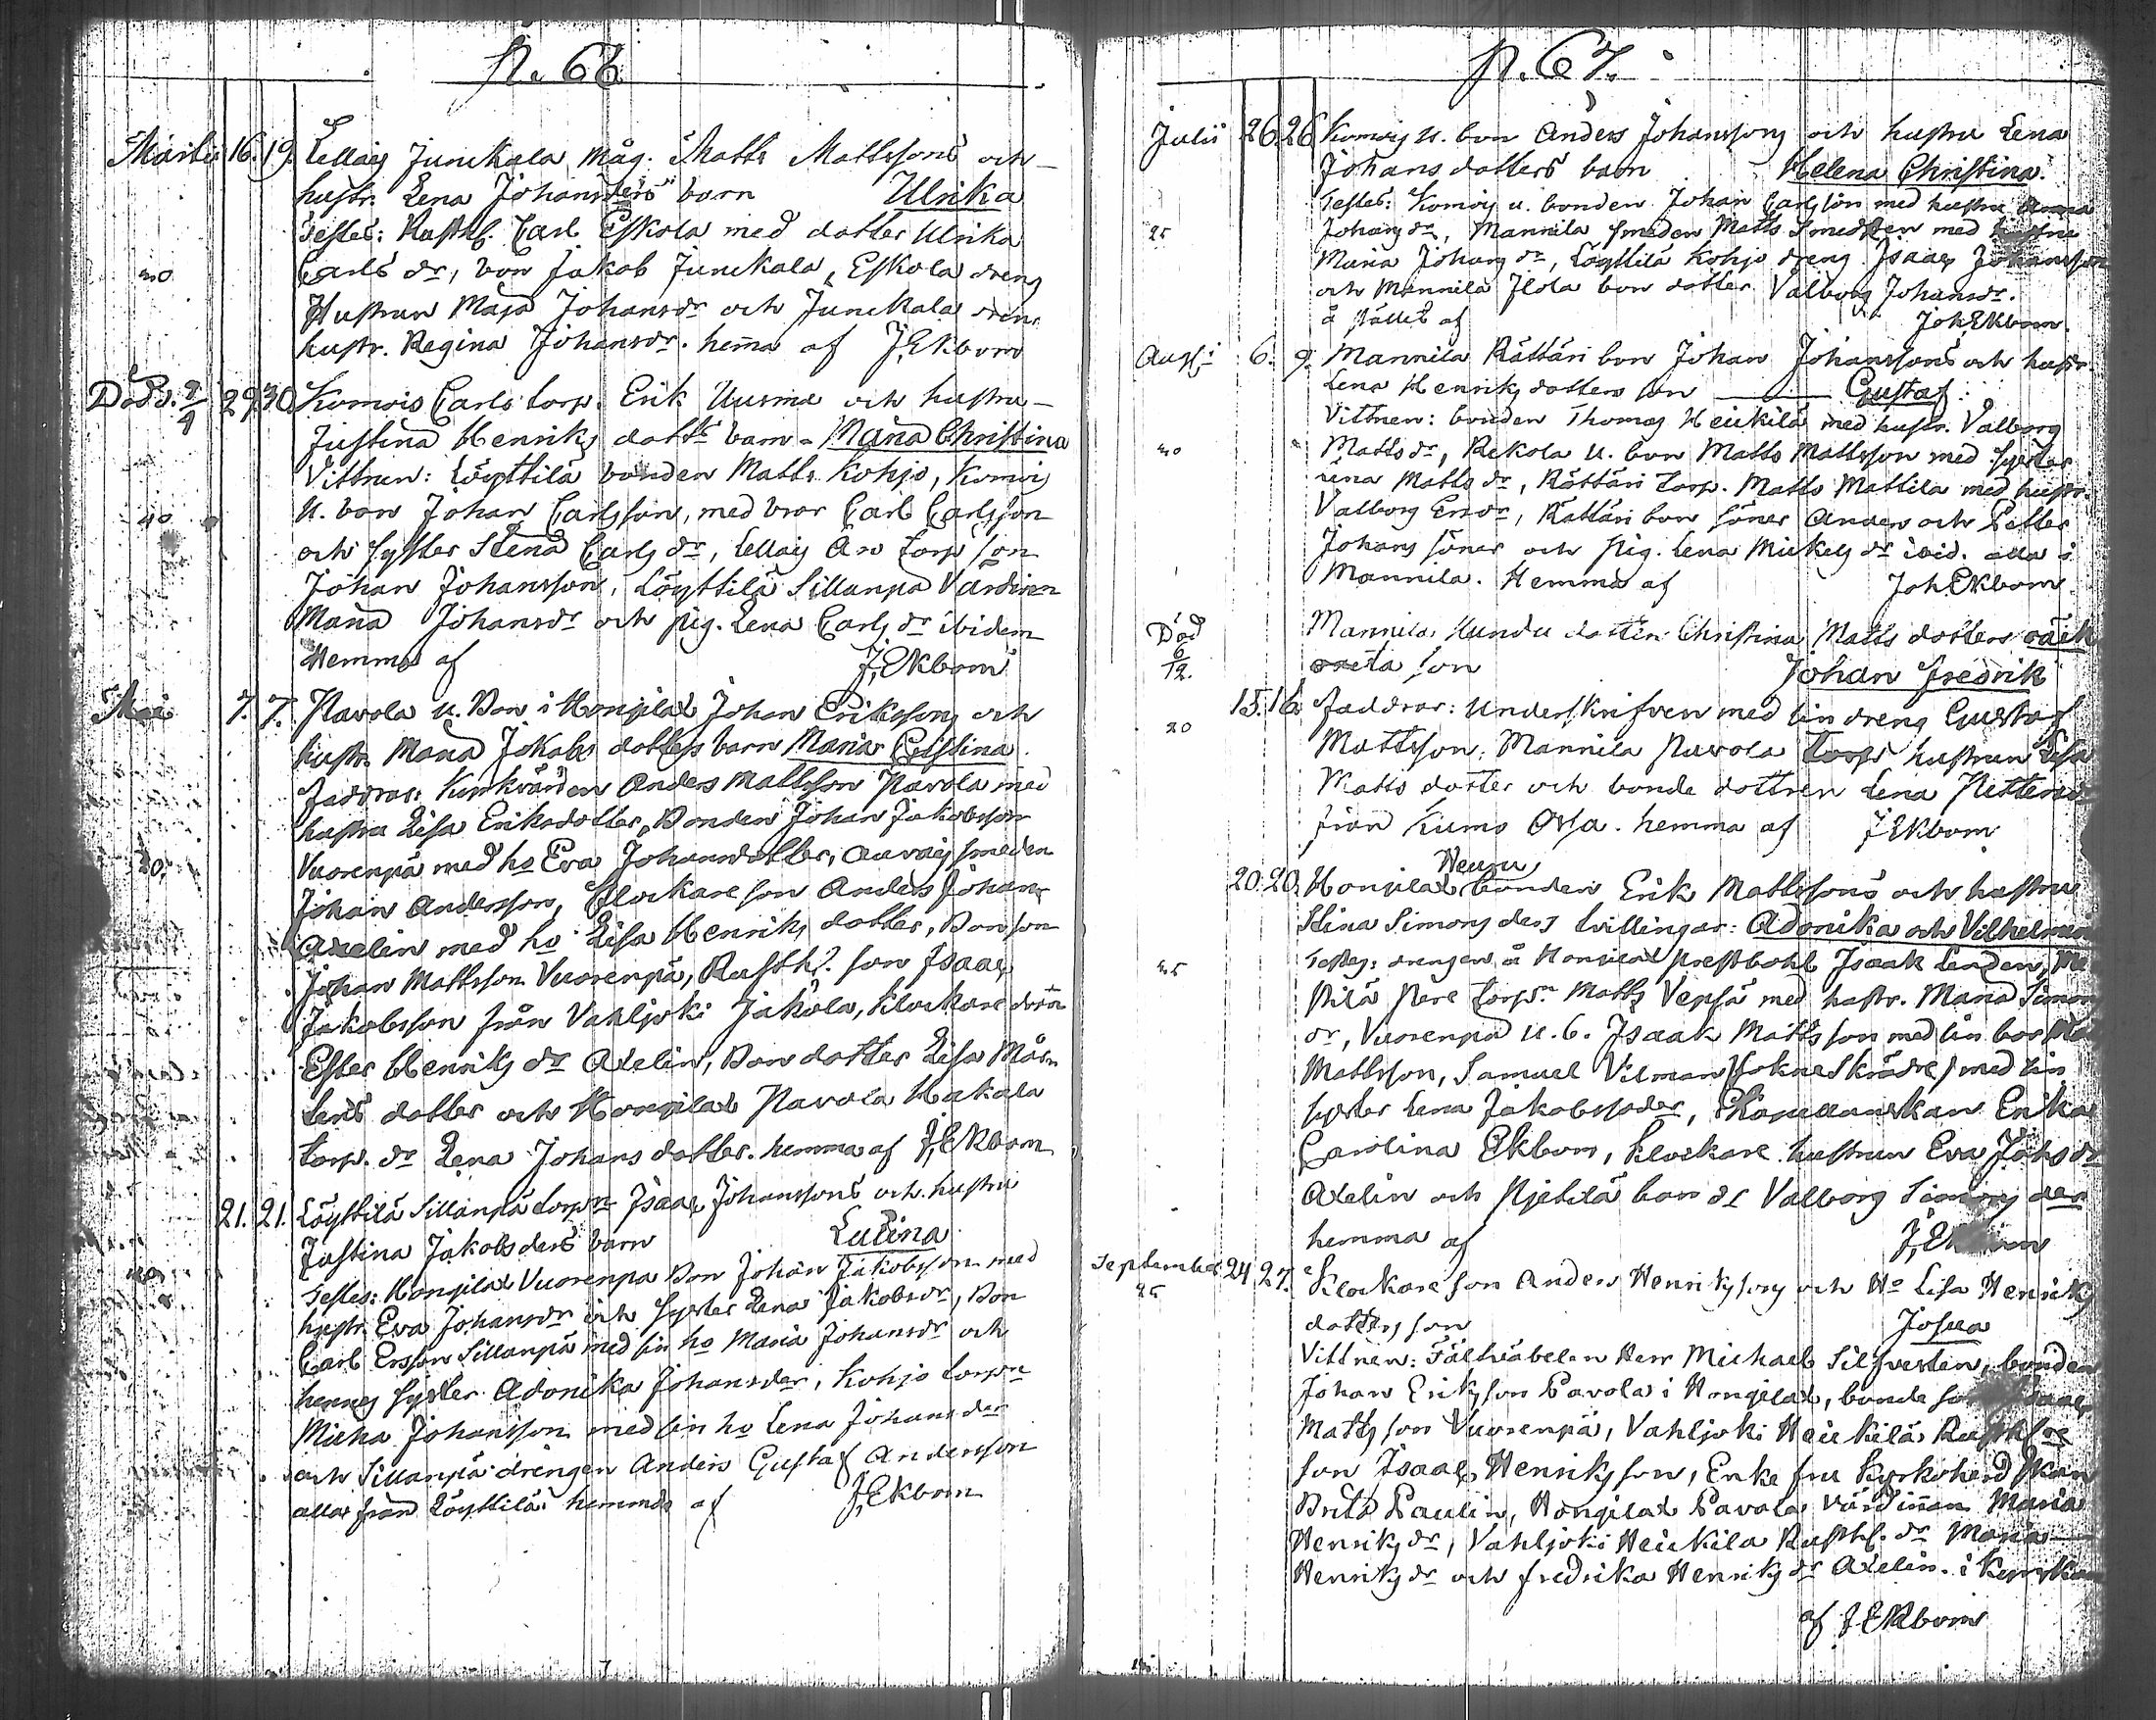 p. 66
Martii 16. 19. Lellais Junckala måg. Matts Mattssons och
hustr. Lena Johansders barn Ulrika
Testes: Rusth. Carl Eskola med dotter Ulrika
40 Carls dr, bon Jakob Junckala, Eskola dreng
Hustrun Maja Johansdr och Junckala dreng
hustr. Regina Johansdr. hemma af J. Ekbom
Död d. 9/4 29. 30. Komois Carls torp. Erik Uusma och hustru
Justina Henriks dotts barn - Maria Christina
Vittnen: Löyttilä bonden Matts Kohjo, Komois
40 U. bon Johan Carlsson, med bror Carl Carlsson
och syster Stena Carls dr, Lellais An torp son
Johan Johansson, Löyttilä Sillanpä Värdinn
Maria Johansdr och pig. Lena Carls dr ibidem
Hemma af J. Ekbom
Maii 7. 7. Pavola u. Bon i Honjilax Johan Erikssons och
hustr. Maria Jakobs dotters barn Maria Cristina
Faddrar: Kyrkvärden Anders Mattsson Pavola med
hustru Lisa Eriksdotter, Bonden Johan Jakobsson
20. Vuorenpä med ho Eva Johansdotter, Auvais smeden
Johan Andersson, Clockare son Anders Johan
Axelin med ho Lisa Henriks dotter, Bon son
Johan Mattsson Vuorenpä, Rusth. son Isaac
Jakobsson från Vahljoki Jakola, Klockare
Ester Henriks dr Axelin, Bon dotter Lisa Mår
tens dotter och Honjilax Pavola Hakala
torp. dr Lena Johans dotter. hemma af J. Ekbom
21. 21. Löyttilä Sillanpä torpn Isaac Johanssons och hustru
Justina Jakobs ders barn Lutina
Testes: Honjilax Vuorenpä Bon Johan Jakobsson med
hustr. Eva Johansdr och syster Lena Jakobsdr, Bon
Carl Ersson Sillanpä med sin ho Maria Johansdr och
hennes syster Adonika Johansder, Kohjo torpn
Micha Johansson med sin ho Lena Johansder
och Sillanpä drengen Anders Gustaf Andersson
alla från Löyttilä hemma af J. Ekbom
p. 67.
Julii 26. 26 Komois U. bon Anders Johanssons och hustru Lena
Johans dotters barn Helena Christina
Testes: Komois u. bonden Johan Carlsson med hustru Anna
25 Johans dr, Mannila smeden Matts Smedsten med hustru
Maria Johans dr, Löyttilä Kohjo dreng Isaac Johansson
och Mannila Ilola bon dotter Valborg Johansdr.
å stället af Joh Ekbom.
Augsti 6. 9. Mannila Rättäri bon Johan Johanssons och hustr.
Lena Henriks dotters son Gustaf.
Vittnen: bonden Thomas Heickilä med hustr. Valborg
40 Matts dr, Rekola U. bon Matts Mattsson med syster
Lena Matts dr, Rättäri torp. Matts Mattila med hustr.
Valborg Ersdr, Rättäri bon söner Anders och Petter
Johans söner och pig. Lena Mickels dr ibid. alla i
Mannila. Hemma af Joh Ekbom
Mannila Hundu dotter Christina Matts dotters oäck
Död 6/12. son Johan Fredrik
15. 16. Faddrar: Underskrifven med sin dreng Gustaf
20 Mattsson, Mannila Pavola torps hustrun Lisa
Matts dotter och bonde dottren Lena
från Kumo Orsa. hemma af J Ekbom
Heuru
20. 20. Honjilax bonden Erik Mattssons och hustru
Stina Simons ders tvillingar: Adonika och Vilhelmina
45 Testes: drengen å Honjilax prestbohl Isaak Lenden,
Pere torpn Matts Vepsä med hustr. Maria Simons
dr, Vuorenpä u. b. Isaak Mattsson med sin bror
Mattsson, Samuel Vilman (Sokneskrädre) med sin
syster Lena Jakobsdr, Kapellanskan Erika
Carolina Ekbom, Klockare hustrun Eva Johsdr
Axelin och bon dr Valborg Simons der
hemma af J. Ekbom
September 24 27. Klockare son Anders Henrikssons och Ho Lisa Henriks
25 dotters son Josua
Vittnen: Fältväbelen Herr Michael Silfversten, bonden
Johan Eriksson Pavola i Honjilax, bonde son Isaac
Mattsson Vuorenpä, Vahljoki Heickilä Rusth
son Isaac Henriksson, Enke fru Kyrkoherdskan
Brita Paulin, Honjilax Pavola värdinnan Maria
Henriks dr, Vahljoki Heickilä Rusth. dr Maria
Henriks dr och Fredrika Henriks dr Axelin. i Kyrkan
af J Ekbom